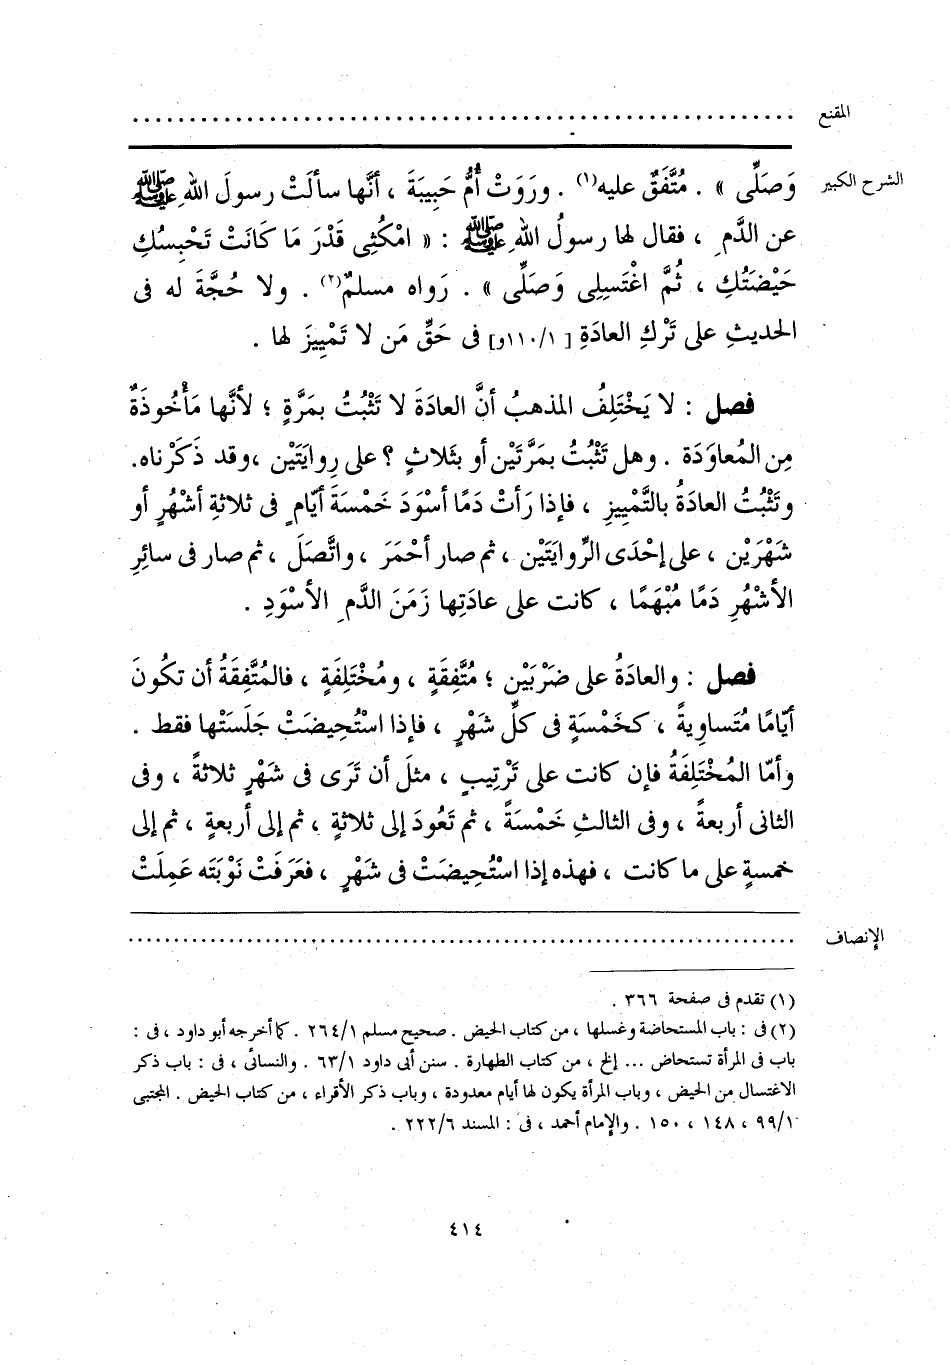 المقنع ............................................................
الشرح الكبير
وَصَلِّى » . مُتَّفَقٌ عليه(١) . ورَوَتْ أُمُّ حَبِيبَةَ ، أنَّها سألَتْ رسولَ اللهِ ﷺ
عن الدَّمِ ، فقال لها رسولُ اللهِ ﷺ : « امْكُثِى قَدْرَ مَا كَانَتْ تَحْبِسُكِ
حَيْضَتُكِ ، ثُمَّ اغْتَسِلِى وَصَلِّى » . رَواه مسلمٌ(٢) . ولا حُجَّةَ له فى
الحديثِ على تَرْكِ العادَةِ [ ١/ ١١٠و] فى حَقِّ مَن لا تَمْيِيزَ لها .
فصل : لا يَخْتَلِفُ المذهبُ أنَّ العادَةَ لا تَثْبُتُ بمَرَّةٍ ؛ لأنَّها مَأْخُوذَةٌ
مِن المُعاوَدَة . وهل تَثْبُتُ بمَرَّتَيْن أو بثَلاثٍ ؟ على رِوايَتَيْن ، وقد ذَكَرْناه.
وتَثْبُتُ العادَةُ بالتَّمْيِيزِ ، فإذا رَأتْ دَمًا أسْوَدَ خَمْسَةَ أيّامٍ فى ثلاثةِ أشْهُرٍ أو
شَهْرَيْن ، على إحْدَى الرِّوايَتَيْن ، ثم صار أحْمَرَ ، واتَّصَلَ ، ثم صار فى سائِرِ
الأشْهُرِ دَمًا مُبْهَمًا ، كانت على عادَتِها زَمَنَ الدَّمِ الأسْوَدِ .
فصل : والعادَةُ على ضَرْبَيْن ؛ مُتَّفِقَةٍ ، ومُخْتَلِفَةٍ ، فالمُتَّفِقَةُ أن تكُونَ
أيّامًا مُتَساوِيةً ، كخَمْسَةٍ فى كلِّ شَهْرٍ ، فإذا اسْتُحِيضَتْ جَلَسَتْها فقط .
وأمّا المُخْتَلِفَةُ فإن كانت على تَرْتِيبٍ ، مثلَ أن تَرَى فى شَهْرٍ ثلاثةً ، وفى
الثانى أربعةً ، وفى الثالثِ خَمْسَةً ، ثم تَعُودَ إلى ثلاثةٍ ، ثم إلى أربعةٍ ، ثم إلى
خمسةٍ على ما كانت ، فهذه إذا اسْتُحِيضَتْ فى شَهْرٍ ، فعَرَفَتْ نَوْبَتَه عَمِلَتْ
الإنصاف ............................................................
(١) تقدم فى صفحة ٣٦٦ .
(٢) فى : باب المستحاضة وغسلها ، من كتاب الحيض . صحيح مسلم ١/ ٢٦٤ . كما أخرجه أبو داود ، فى :
باب فى المرأة تستحاض ... إلخ ، من كتاب الطهارة . سنن أبى داود ١/ ٦٣ . والنسائى ، فى : باب ذكر
الاغتسال من الحيض ، وباب المرأة يكون لها أيام معدودة ، وباب ذكر الأقراء ، من كتاب الحيض . المجتبى
١/ ٩٩ ، ١٤٨ ، ١٥٠ . والإمام أحمد ، فى : المسند ٦/ ٢٢٢ .
٤١٤